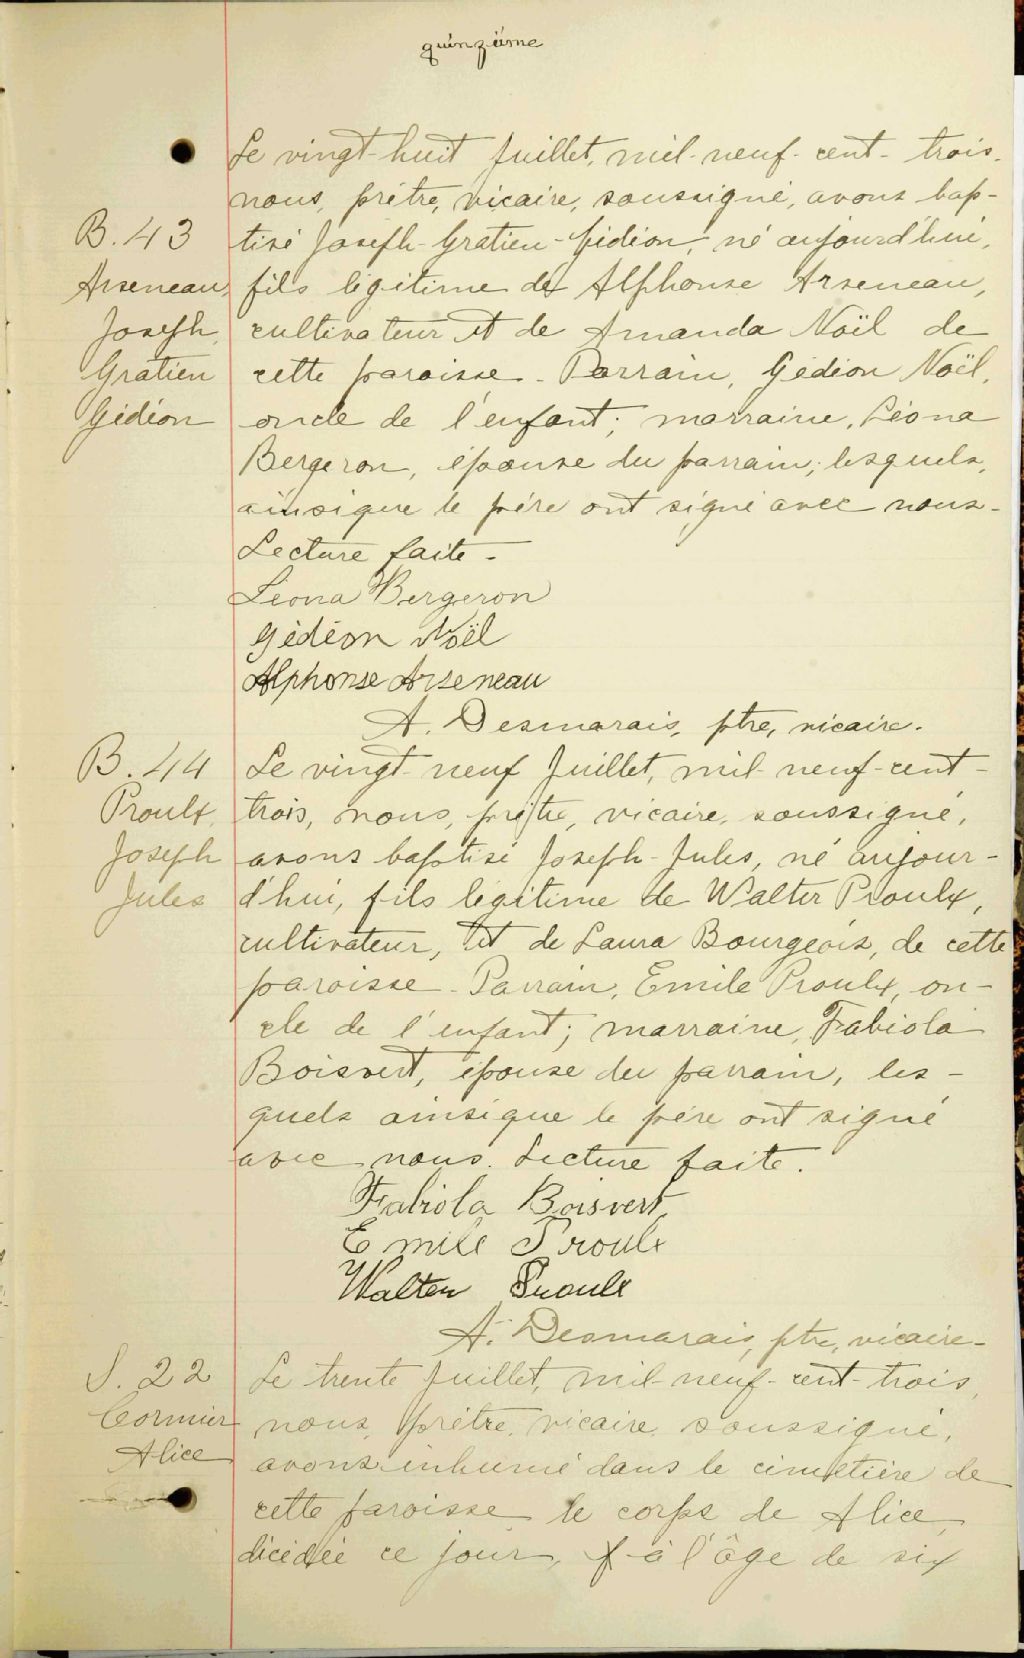 quinzième
Le vingt-huit Juillet, mil-neuf-cent-trois,
nous, prêtre, vicaire, soussigné, avons bap-
B. 43
tisé Joseph-Gratien-Gédéon, né aujourd'hui,
Arseneau,
fils légitime de Alphonse Arseneau,
Joseph,
cultivateur et de Amanda Noël de
Gratien
cette paroisse - Parrain, Gédéon Noël,
Gédéon
oncle de l'enfant; marraine, Léona
Bergeron, épouse du parrain; lesquels,
ainsique le père ont signé avec nous -
Lecture faite -
Léona Bergeron
Gédéon Noël
Alphonse Arseneau
A. Desmarais, ptre, vicaire.
B. 44
Le vingt-neuf Juillet, mil-neuf-cent-
Proulx,
trois, nous, prêtre, vicaire, soussigné,
Joseph
avons baptisé Joseph-Jules, né aujour-
Jules
d'hui, fils légitime de Walter Proulx,
cultivateur, et de Laura Bourgeois, de cette
paroisse - Parrain, Emile Proulx, on-
cle de l'enfant; marraine, Fabiola
Boisvert, épouse du parrain, les-
quels ainsique le père ont signé
avec nous. Lecture faite.
Fabiola Boisvert
Emile Proulx
Walter Proulx
A. Desmarais, ptre, vicaire -
S. 22
Le trente Juillet, mil-neuf-cent-trois,
Cormier
nous, prêtre, vicaire, soussigné,
Alice
avons inhumé dans le cimetière de
cette paroisse le corps de Alice,
décédée ce jour, à l'âge de six